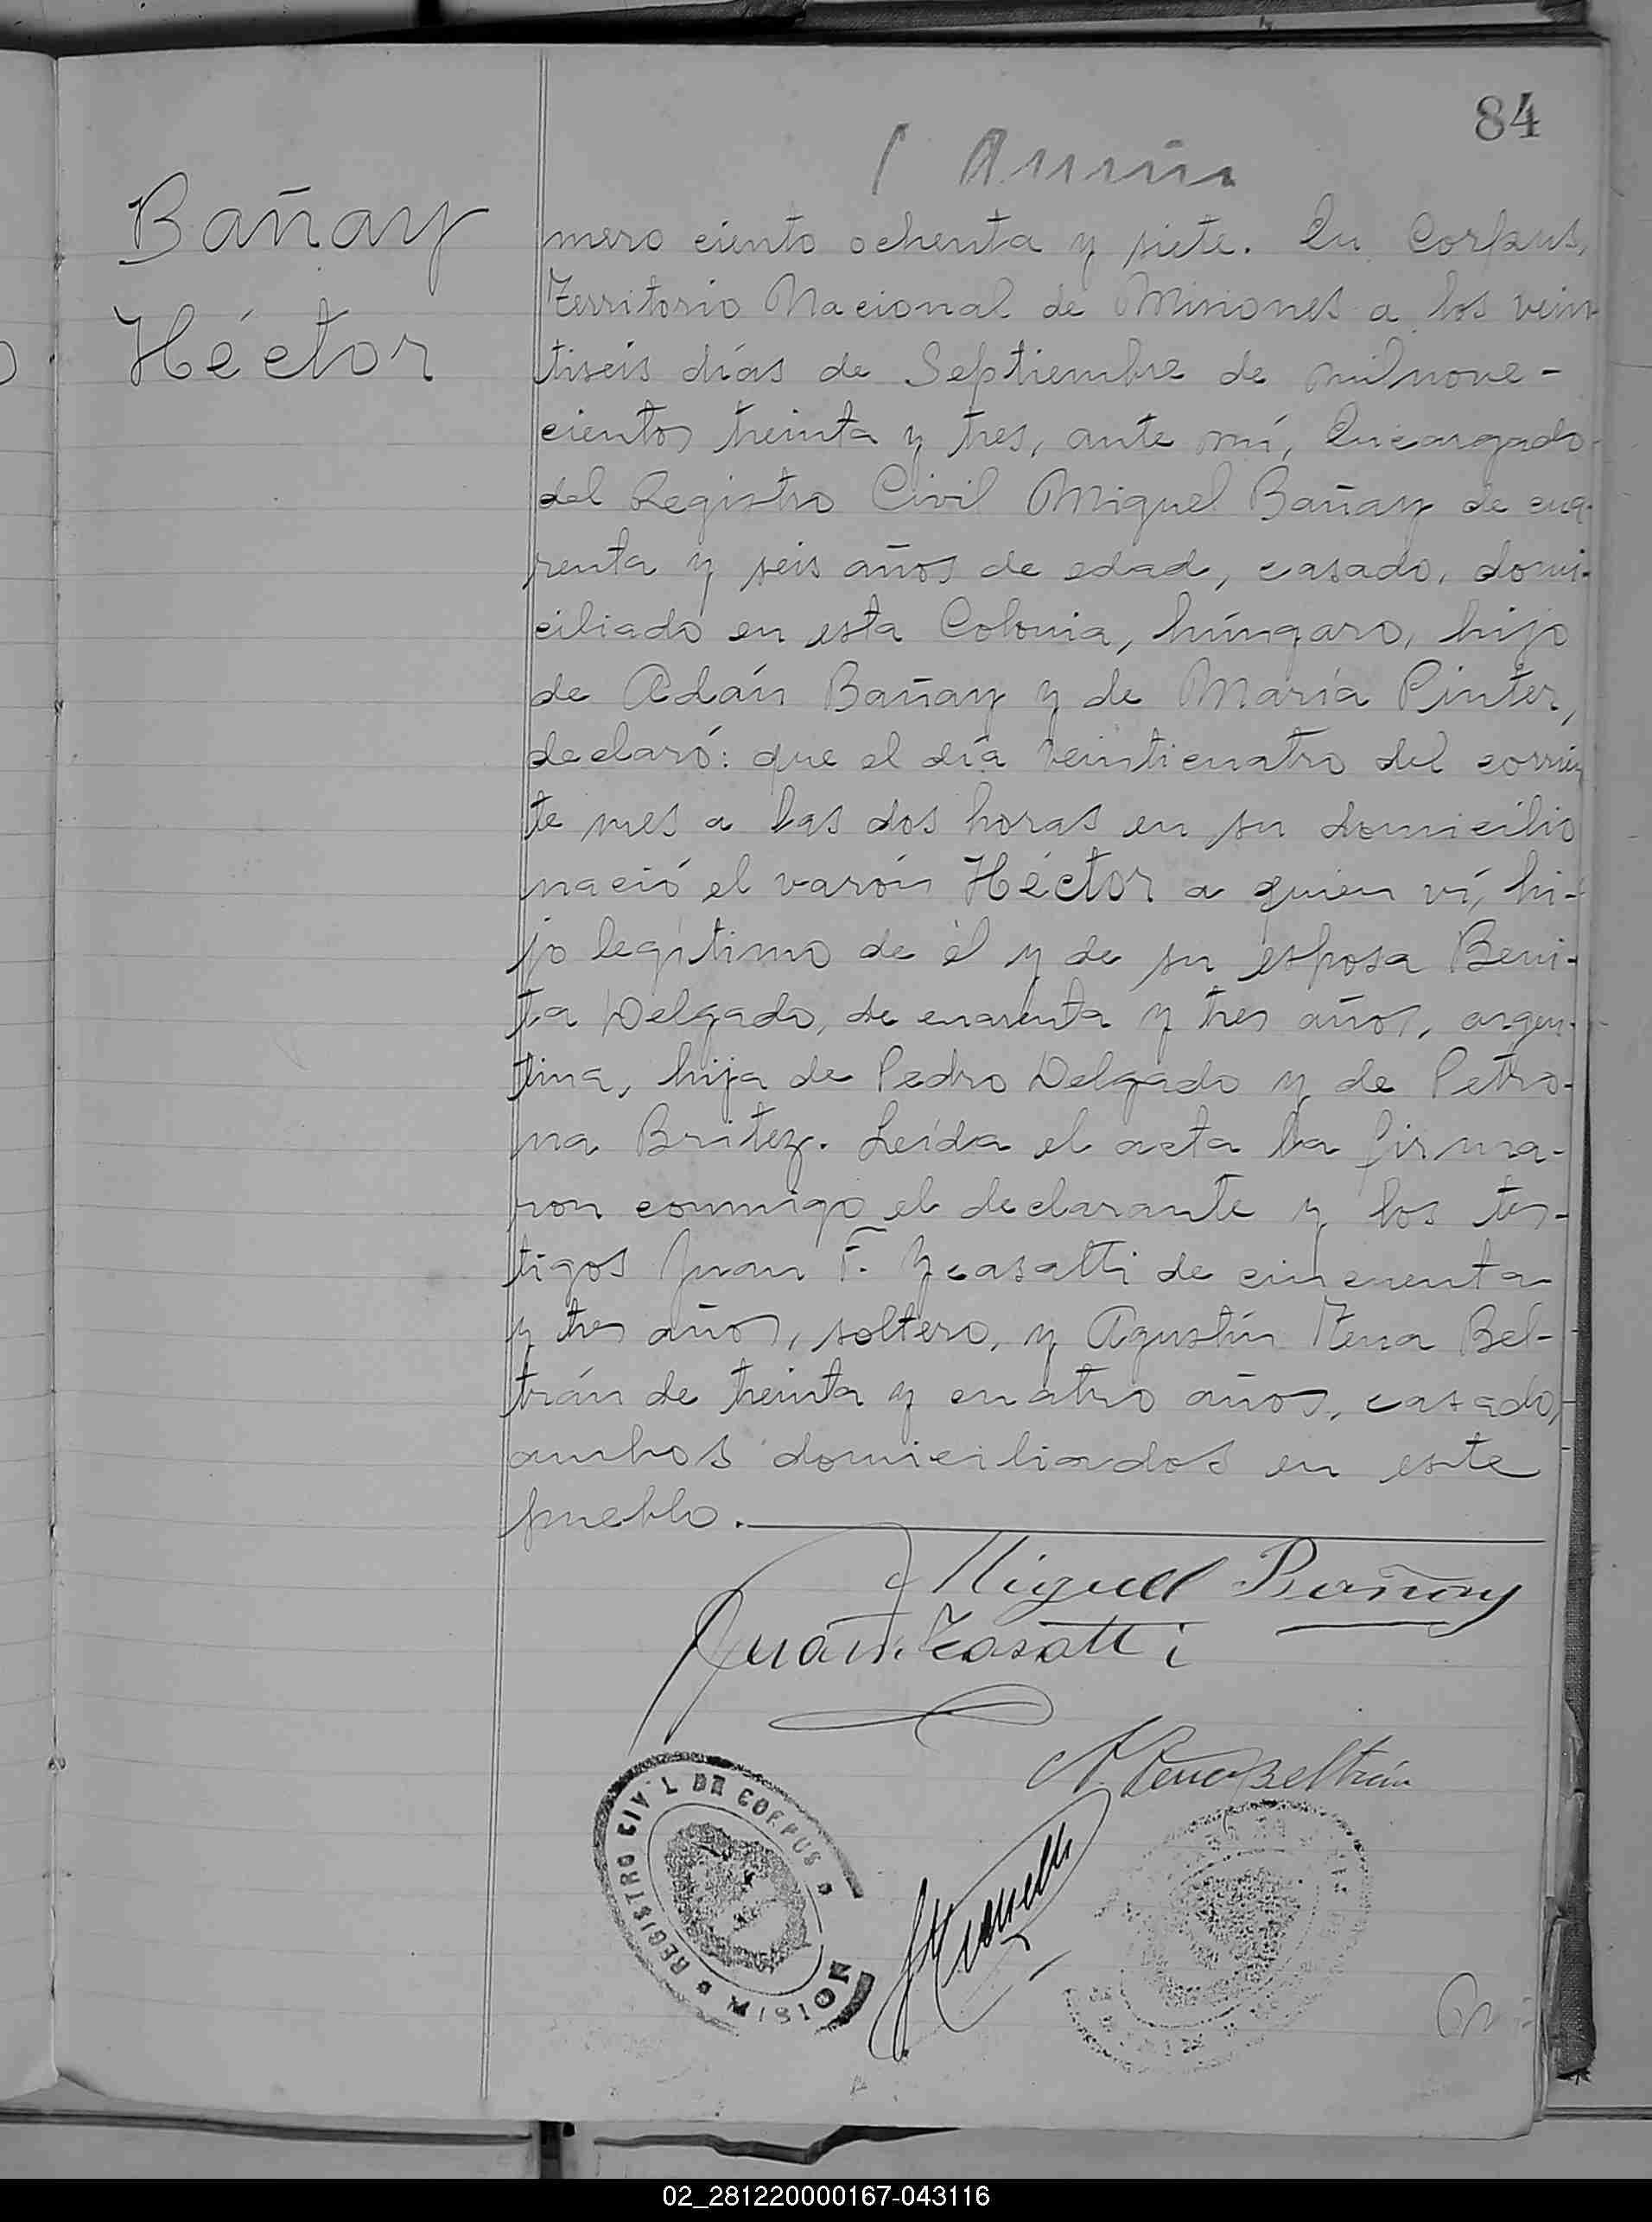 84
Bañay
Héctor
mero ciento ochenta y siete. En Corpus,
Territorio Nacional de Misiones a los vein-
tiseis días de Septiembre de milnove-
cientos treinta y tres, ante mí, Encargado
del Registro Civil Miguel Bañay de cua-
renta y seis años de edad, casado, domi-
ciliado en esta Colonia, húngaro, hijo
de Adán Bañay y de María Pinter,
declaró: que el día veinticuatro del corrien
te mes a las dos horas en su domicilio
nació el varón Héctor a quien ví, hi-
jo legítimo de él y de su esposa Beni-
ta Delgado, de cuarenta y tres años, argen-
tina, hija de Pedro Delgado y de Petro-
na Britez. Leída el acta la firma-
ron conmigo el declarante y los tes-
tigos Juan F. Ycasatti de cincuenta
y tres años, soltero, y Agustín Tena Bel-
trán de treinta y cuatro años, casado,
ambos domiciliados en este
pueblo.
Miguel Bañay
Juan Icasatti
A. Tena Beltrán
REGISTRO CIVIL DE CORPUS
MISION
02_281220000167-043116